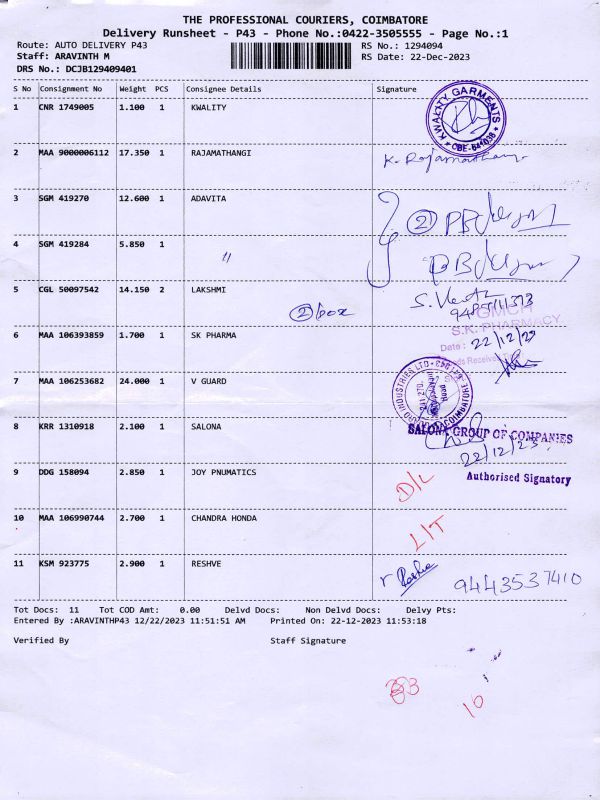 THE PROFESSIONAL COURIERS, COIMBATORE
Delivery Runsheet - P43 - Phone No.:0422-3505555 - Page No.:1
Route: AUTO DELIVERY P43 RS No.: 1294094
Staff: ARAVINTH M RS Date: 22-Dec-2023
DRS No.: DCJB129409401
S No Consignment No Weight PCS Consignee Details Signature
1 CNR 1749005 1.100 1 KWALITY
KWALITY GARMENTS * CBE-641038 *
2 MAA 9000006112 17.350 1 RAJAMATHANGI K. Rajamathangi
3 SGM 419270 12.600 1 ADAVITA
2
4 SGM 419284 5.850 1 "
5 CGL 50097542 14.150 2 LAKSHMI
2 box
GMCH
S.K. PHARMACY
6 MAA 106393859 1.700 1 SK PHARMA Date: 22/12/23
7 MAA 106253682 24.000 1 V GUARD
INDUSTRIES LTD
COIMBATORE
8 KRR 1310918 2.100 1 SALONA SALONA GROUP OF COMPANIES
22/12/23
Authorised Signatory
9 DDG 158094 2.850 1 JOY PNUMATICS D/L
10 MAA 106990744 2.700 1 CHANDRA HONDA L/T
11 KSM 923775 2.900 1 RESHVE 9443537410
Tot Docs: 11 Tot COD Amt: 0.00 Delvd Docs: Non Delvd Docs: Delvy Pts:
Entered By :ARAVINTHP43 12/22/2023 11:51:51 AM Printed On: 22-12-2023 11:53:18
Verified By Staff Signature
10